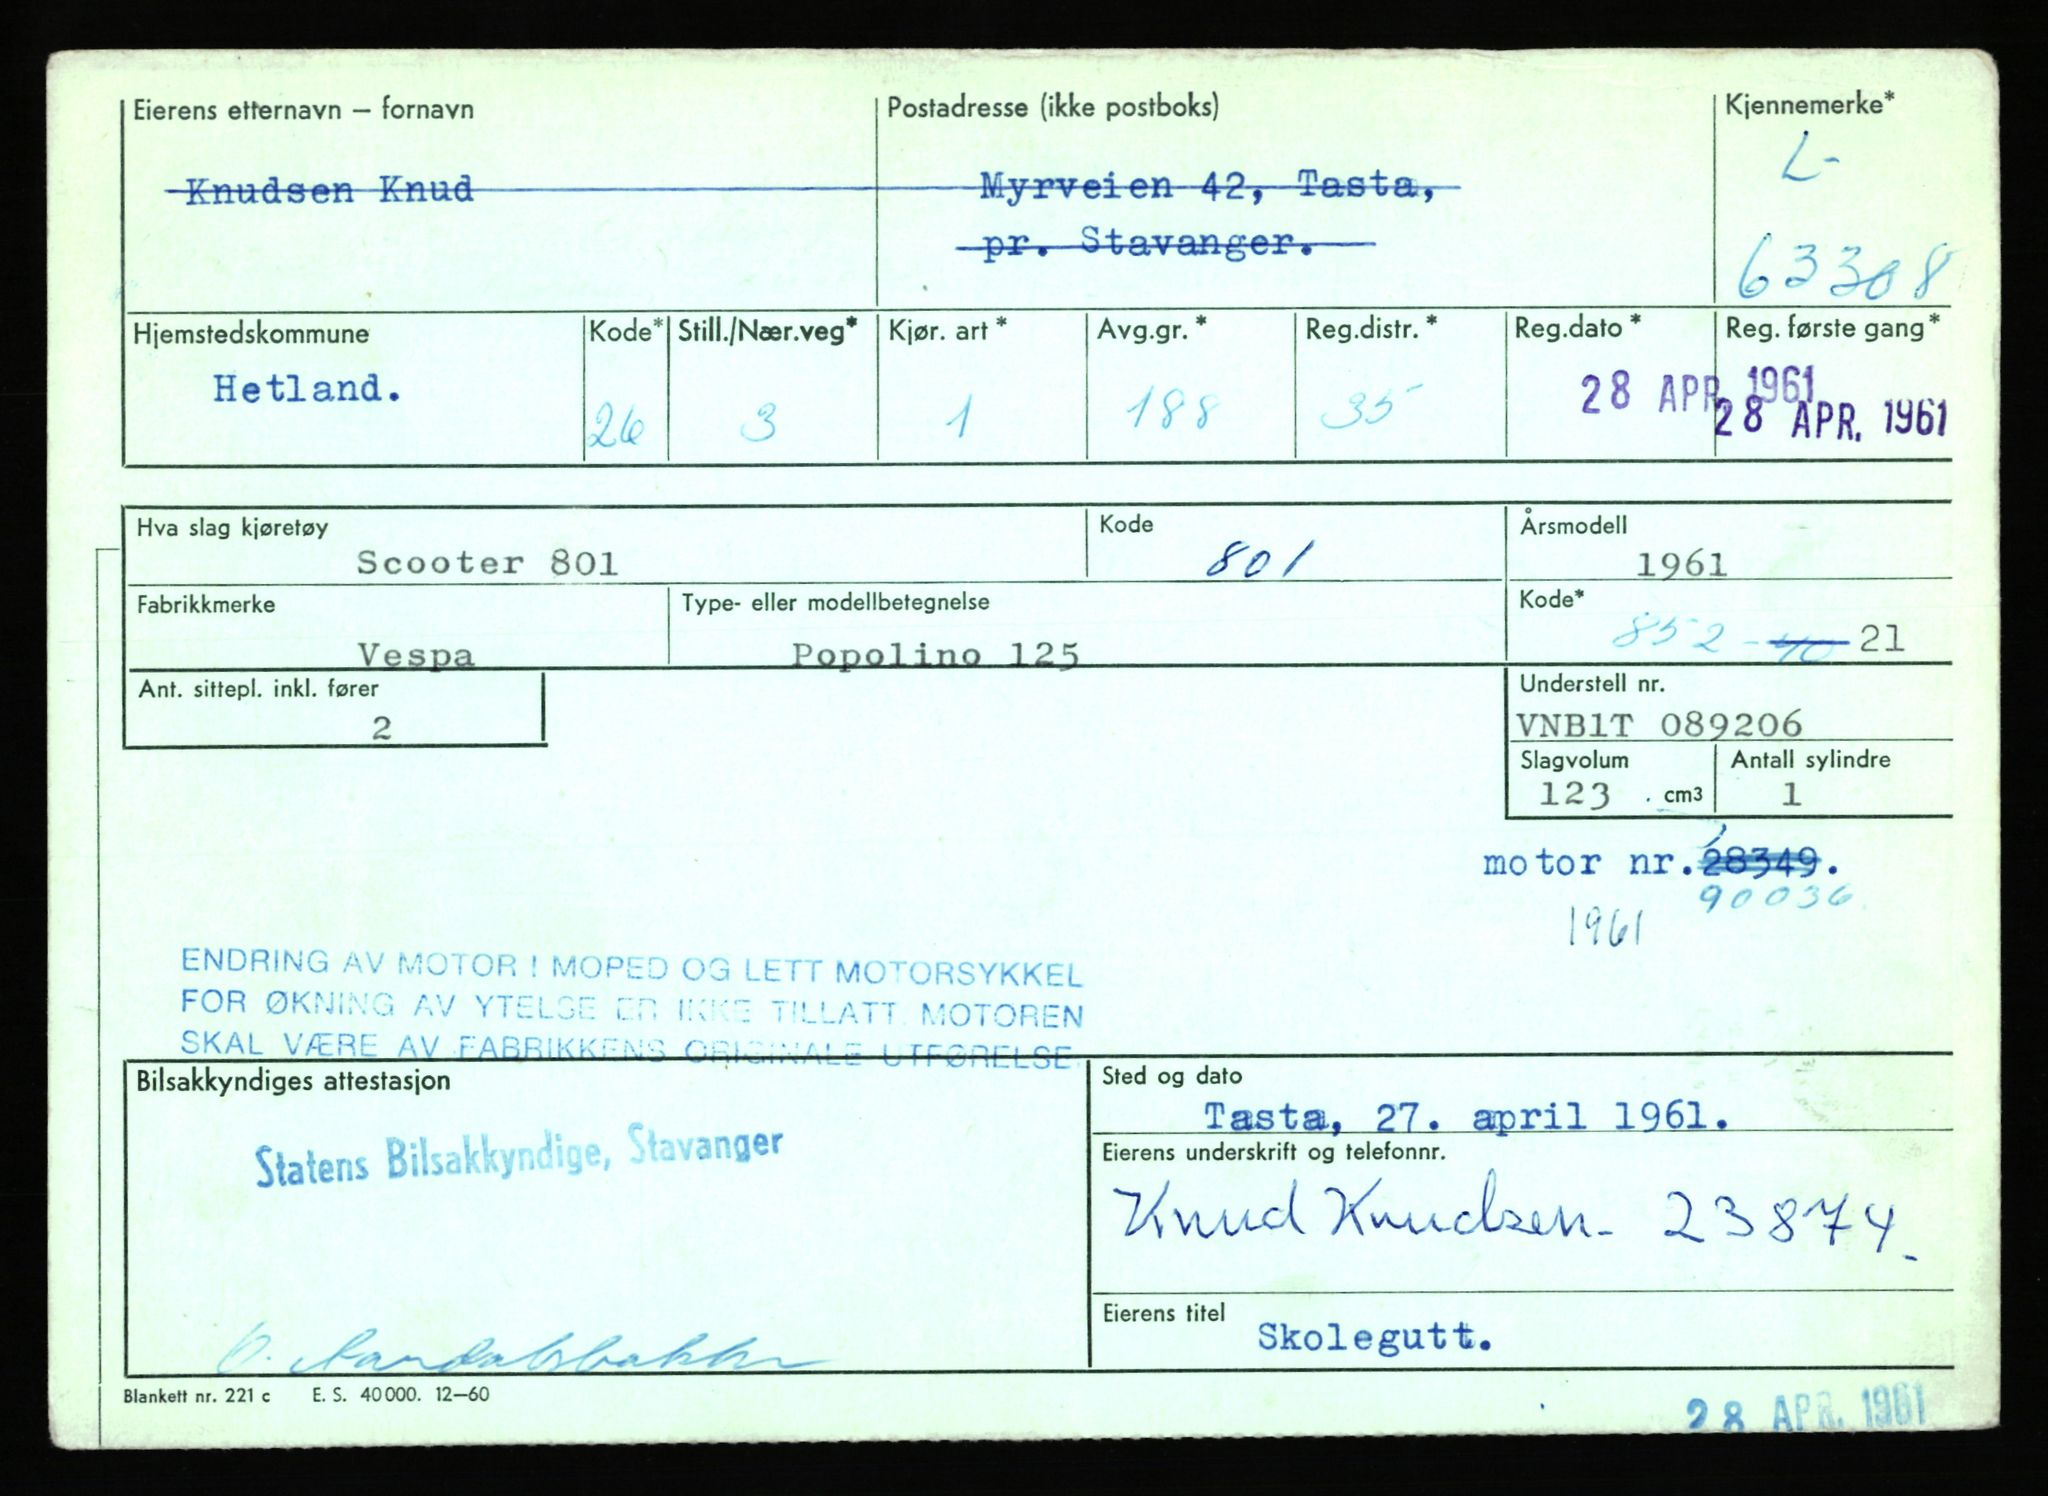 Eierens etternavn – fornavn
Postadresse (ikke postboks)
Kjennemerke*
L-
Knudsen Knud
Myrveien 42, Tasta,
pr. Stavanger.
63308
Hjemstedskommune
Kode*
Still./Nær.veg*
Kjør. art *
Avg.gr. *
Reg.distr. *
Reg.dato *
Reg. første gang*
Hetland.
26
3
1
188
35
28 APR. 1961
28 APR. 1961
Hva slag kjøretøy
Kode
Årsmodell
Scooter 801
801
1961
Fabrikkmerke
Type- eller modellbetegnelse
Kode*
Vespa
Popolino 125
852 - 40 21
Ant. sittepl. inkl. fører
Understell nr.
2
VNB1T 089206
Slagvolum
Antall sylindre
123 cm3
1
motor nr. 28349.
90036
1961
ENDRING AV MOTOR I MOPED OG LETT MOTORSYKKEL
FOR ØKNING AV YTELSE ER IKKE TILLATT. MOTOREN
SKAL VÆRE AV FABRIKKENS ORIGINALE UTFØRELSE.
Bilsakkyndiges attestasjon
Sted og dato
Tasta, 27. april 1961.
Statens Bilsakkyndige, Stavanger
Eierens underskrift og telefonnr.
Knud Knudsen - 23874
Eierens titel
Skolegutt.
Blankett nr. 221 c E. S. 40 000. 12–60
28 APR. 1961